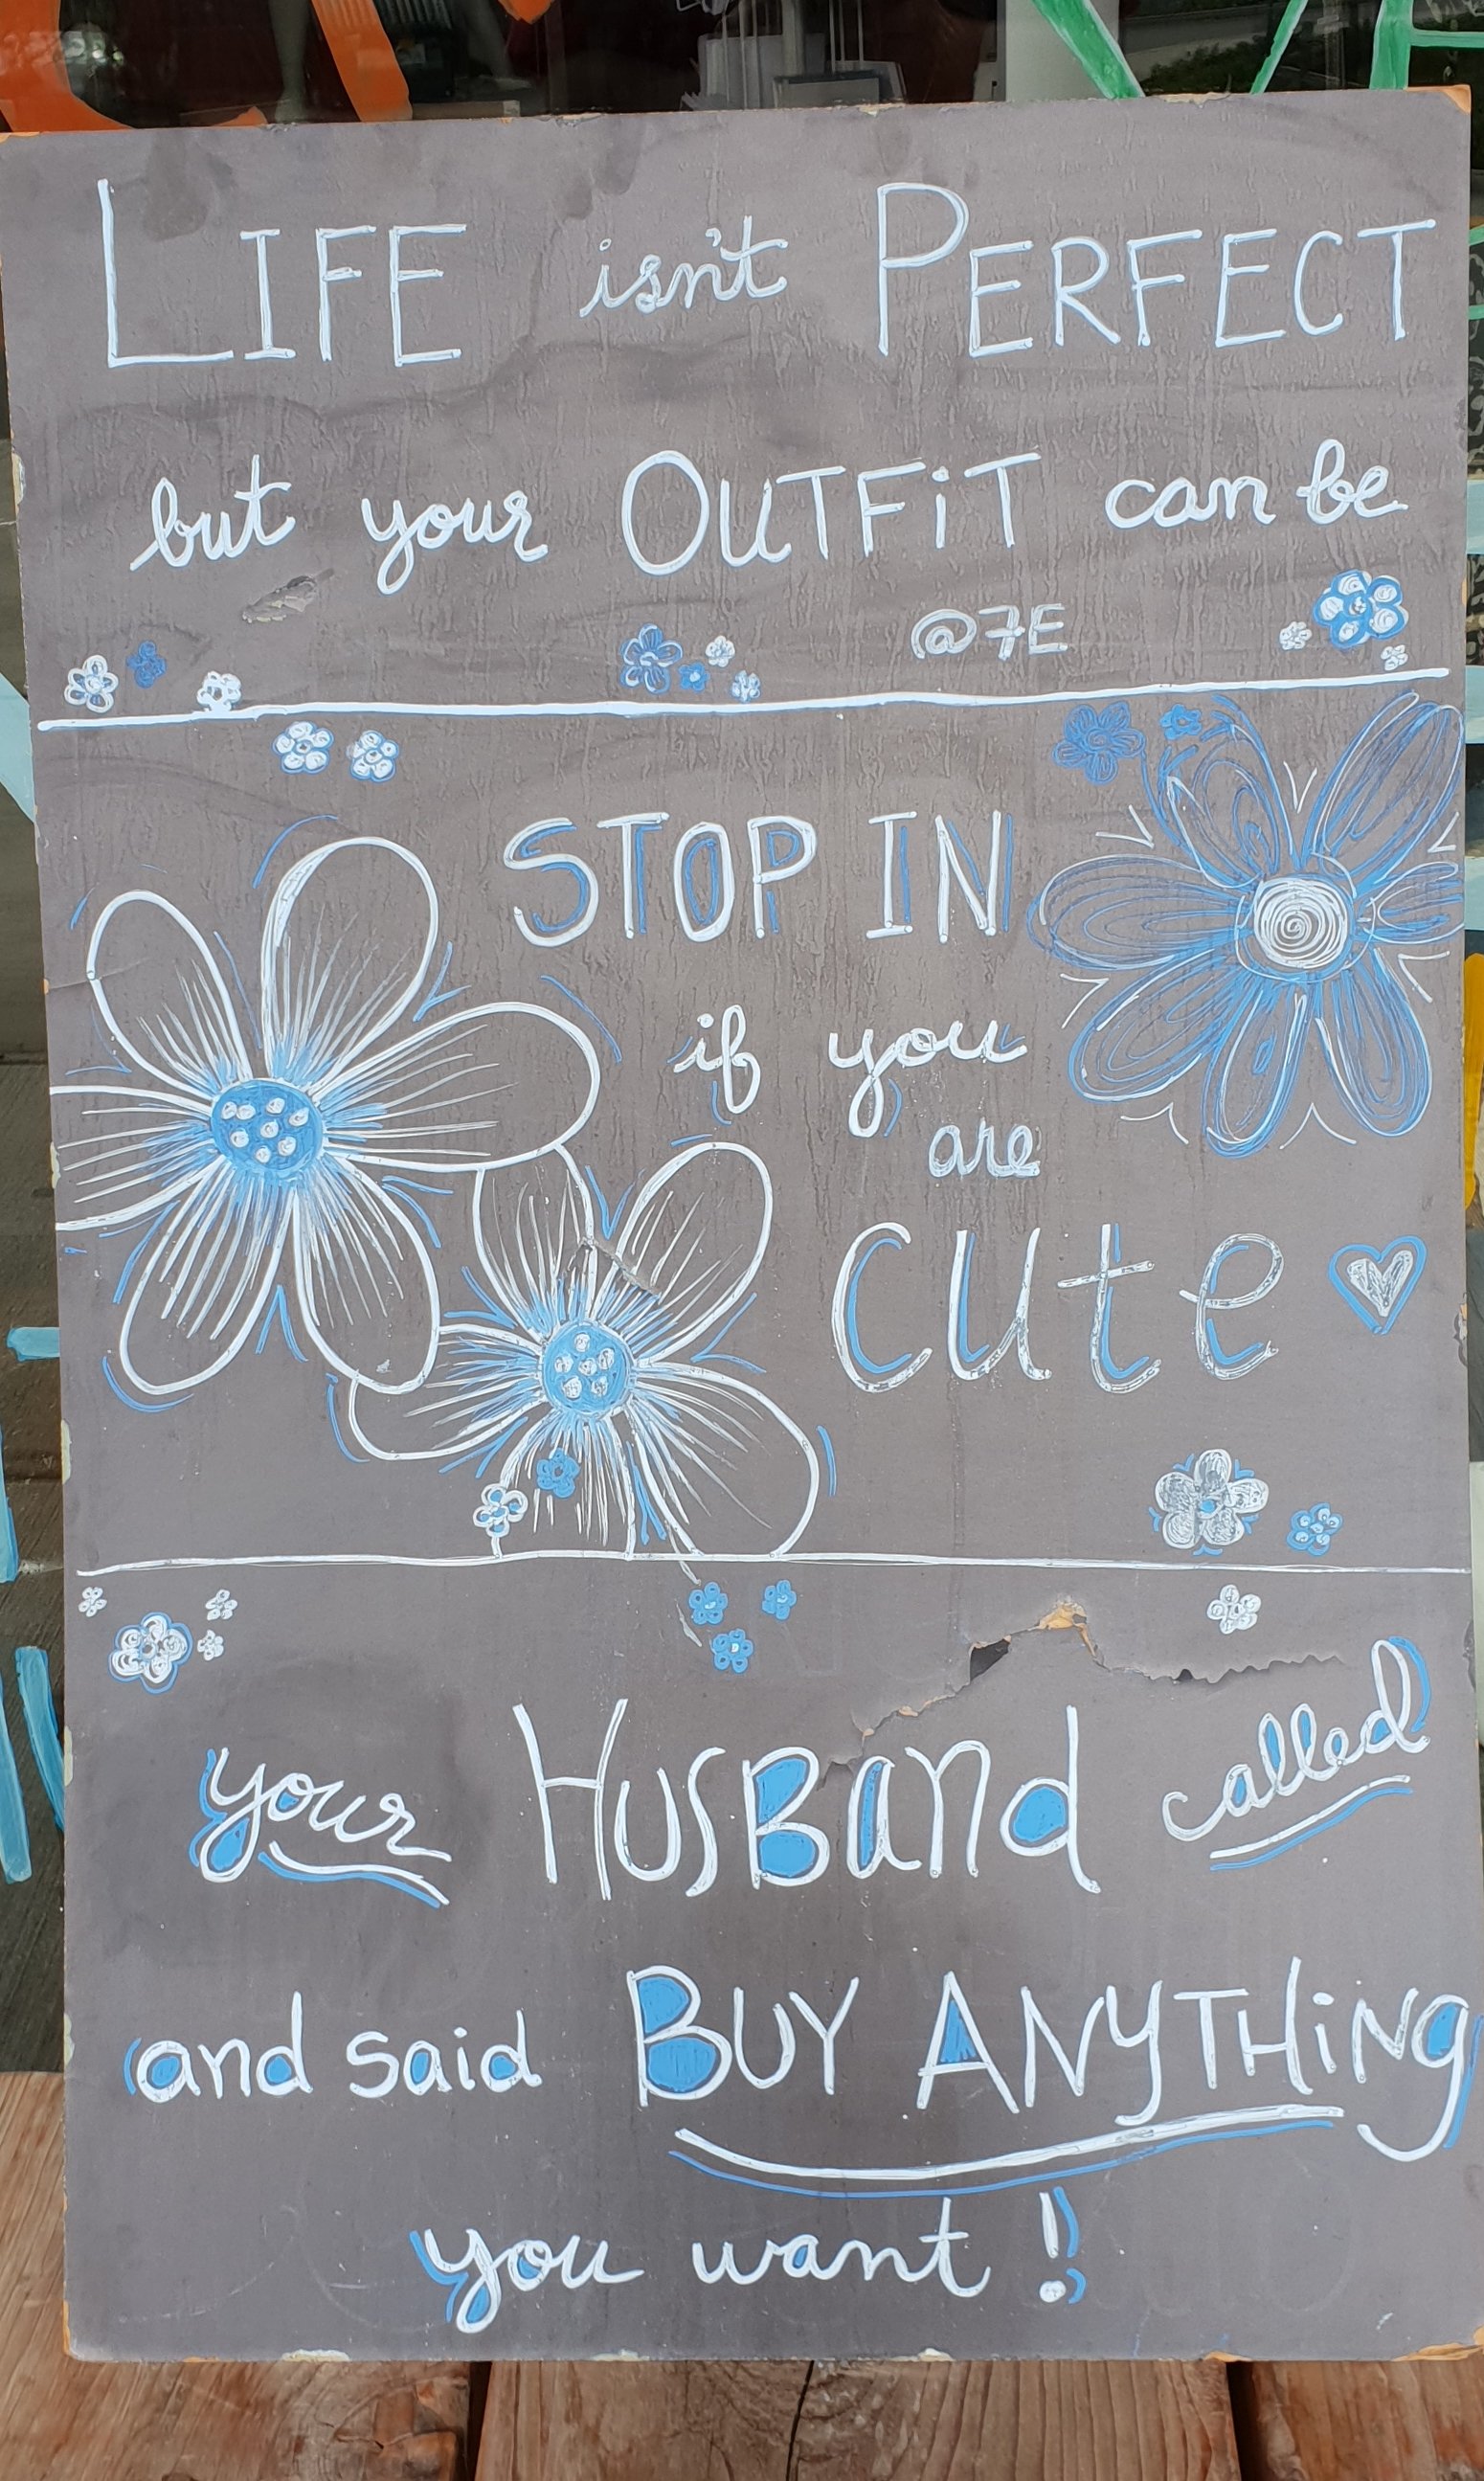 LIFE isn't PERFECT
but your OUTFiT can be
@7E
STOP IN
if you
are
cute
your HusBand called
and said BUY ANYTHiNg
you want!